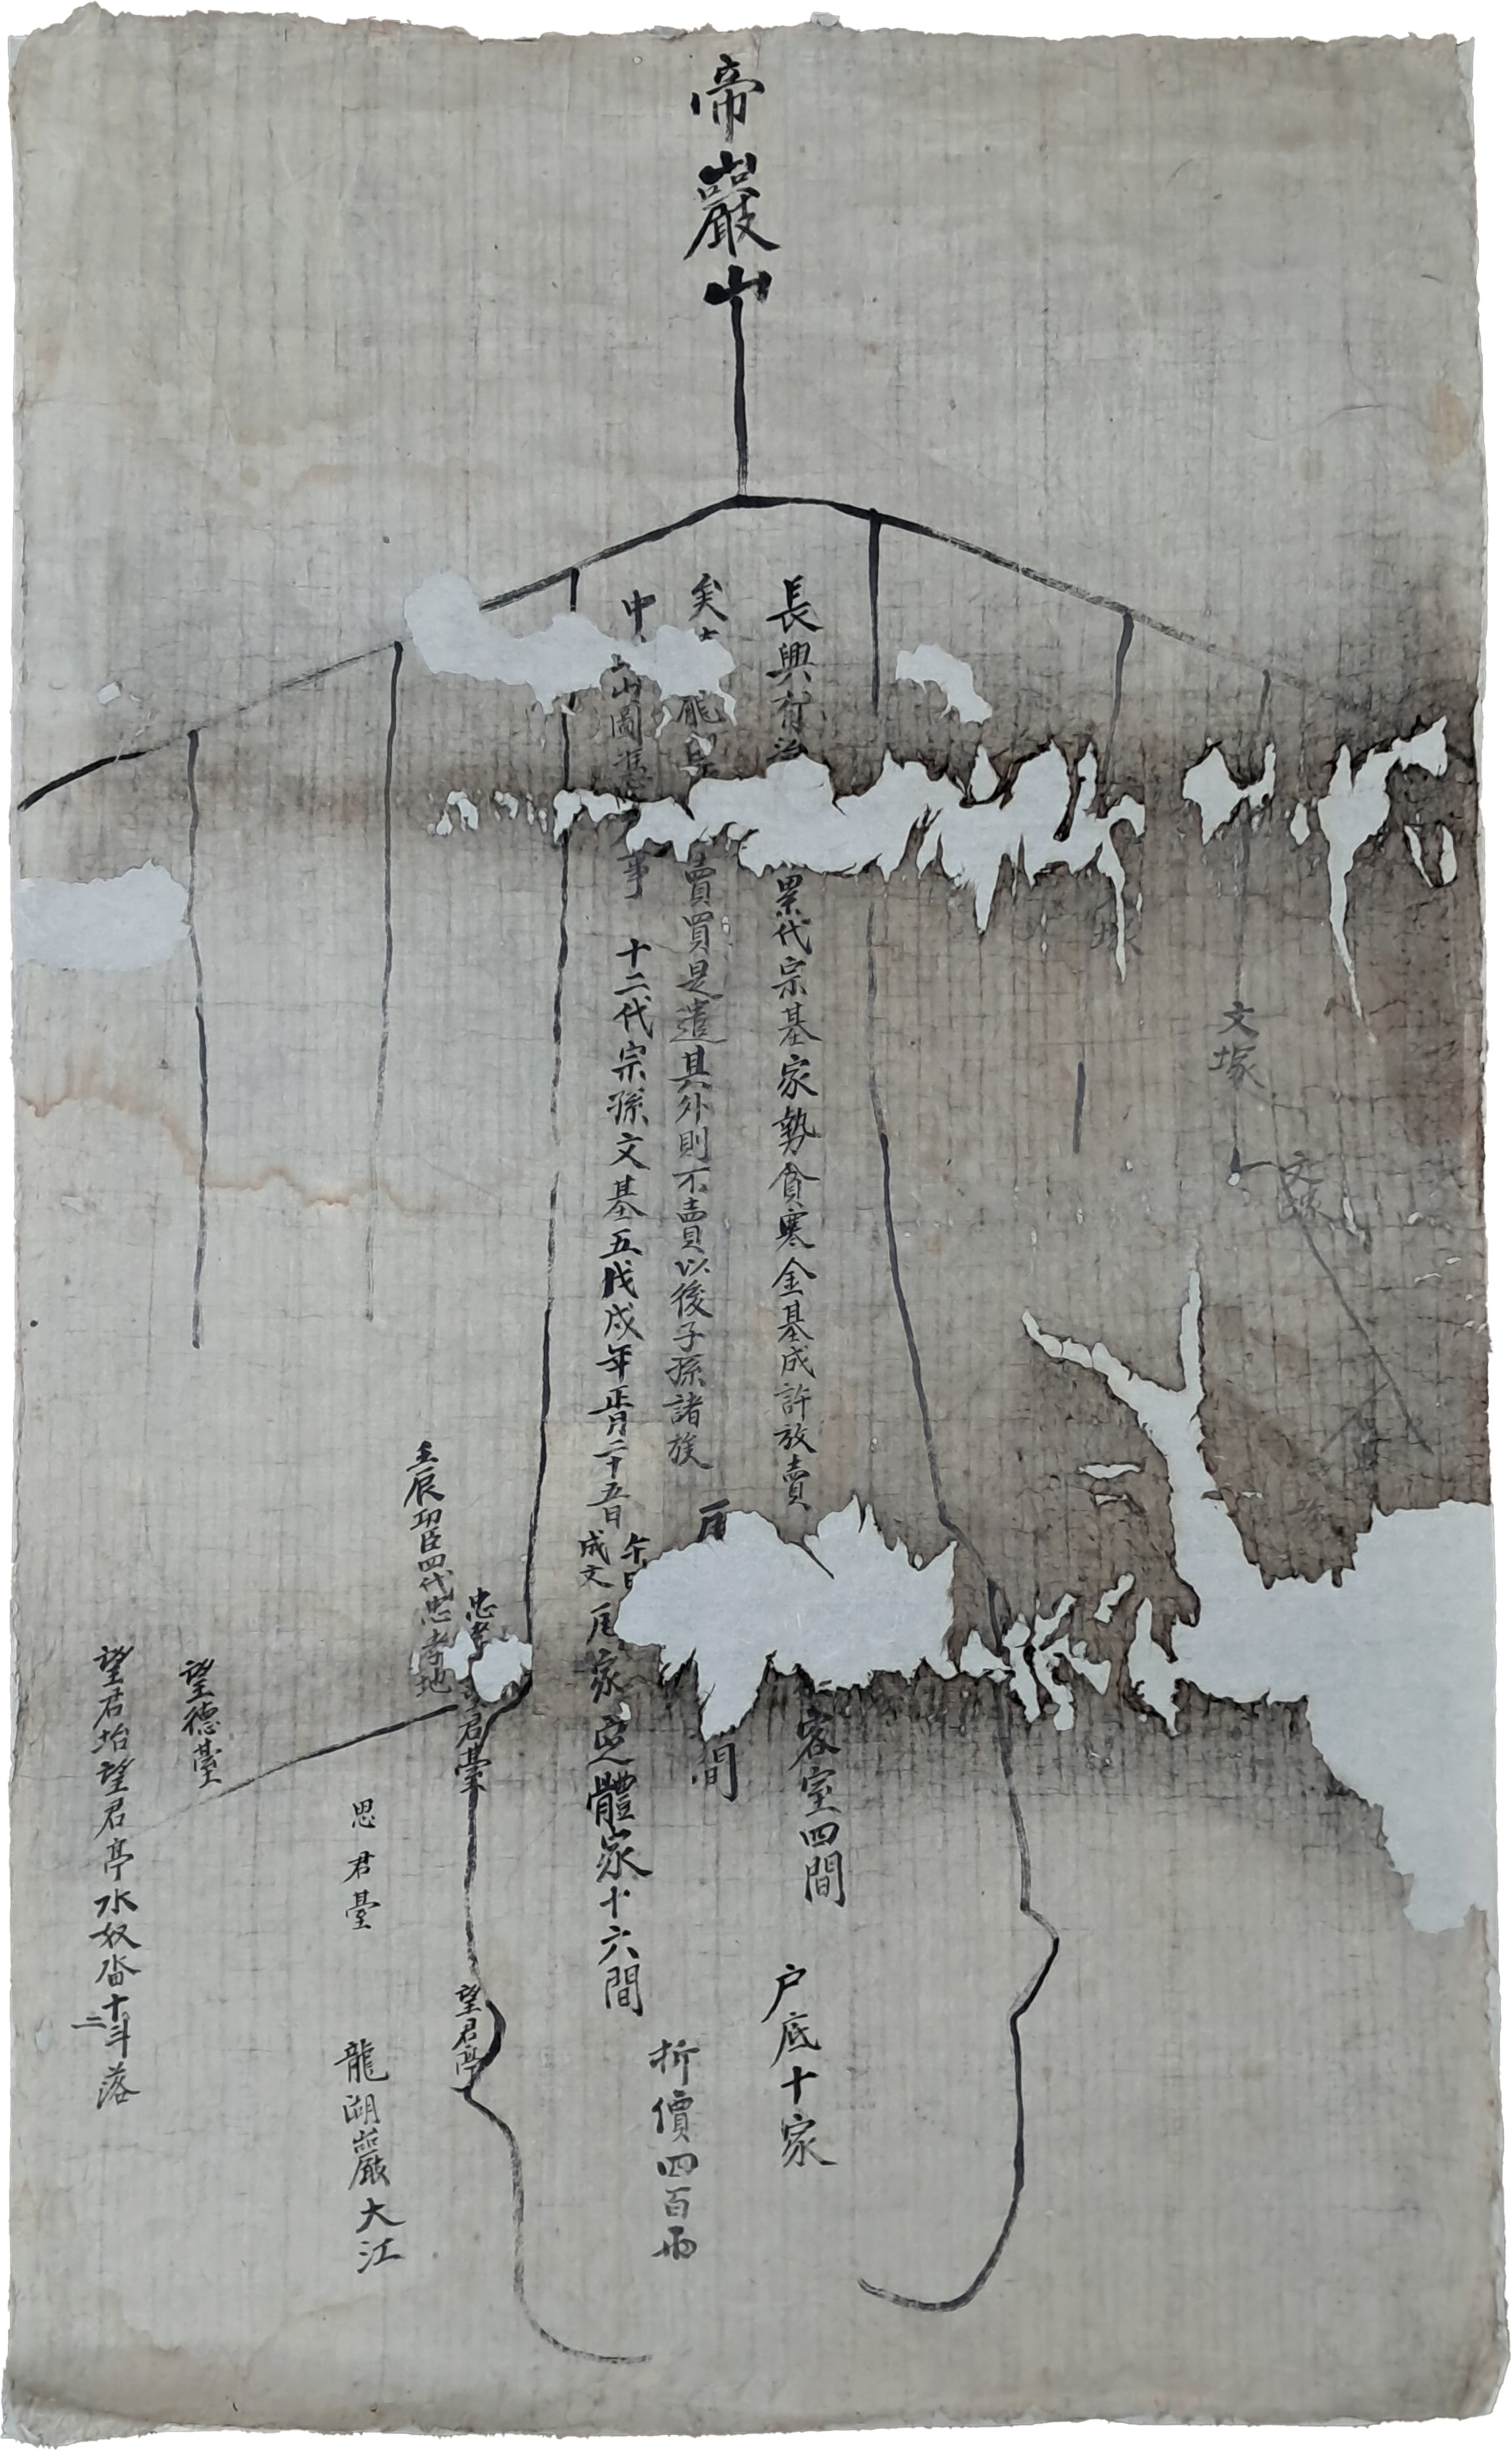 帝巖山
長興府治
累代宗基家勢貧寒金基成許放賣
矣
龍
賣買是遣其外則不賣以後子孫諸族
中
山圖準
事
十二代宗孫文基五戊戌年正月二十五日
午日
成文
文塚
文塚
塚
瓦
間
客室四間
瓦家
體家十六間
戶底十家
折價四百兩
壬辰功臣四代忠孝地
忠孝
君臺
望君亭
思君臺
龍湖巖大江
望德臺
望君坮望君亭水奴畓十二斗落